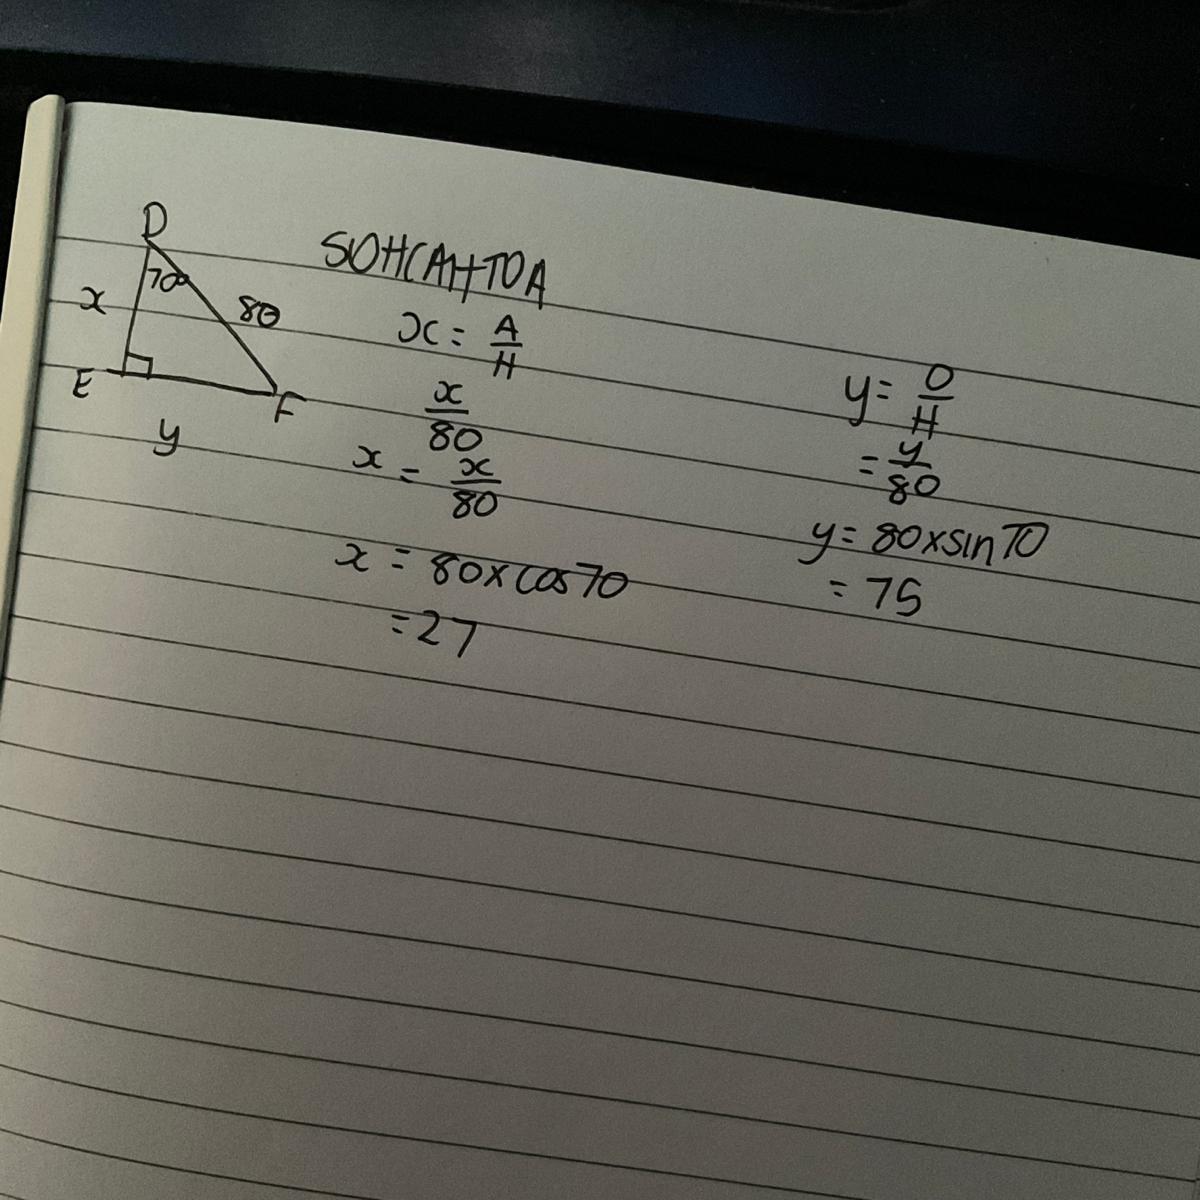 D
70°
x
80
E
F
y
SOHCAHTOA
x = A/H
x/80
x = x/80
x = 80xcos70
= 27
y = O/H
= y/80
y = 80xsin70
= 75